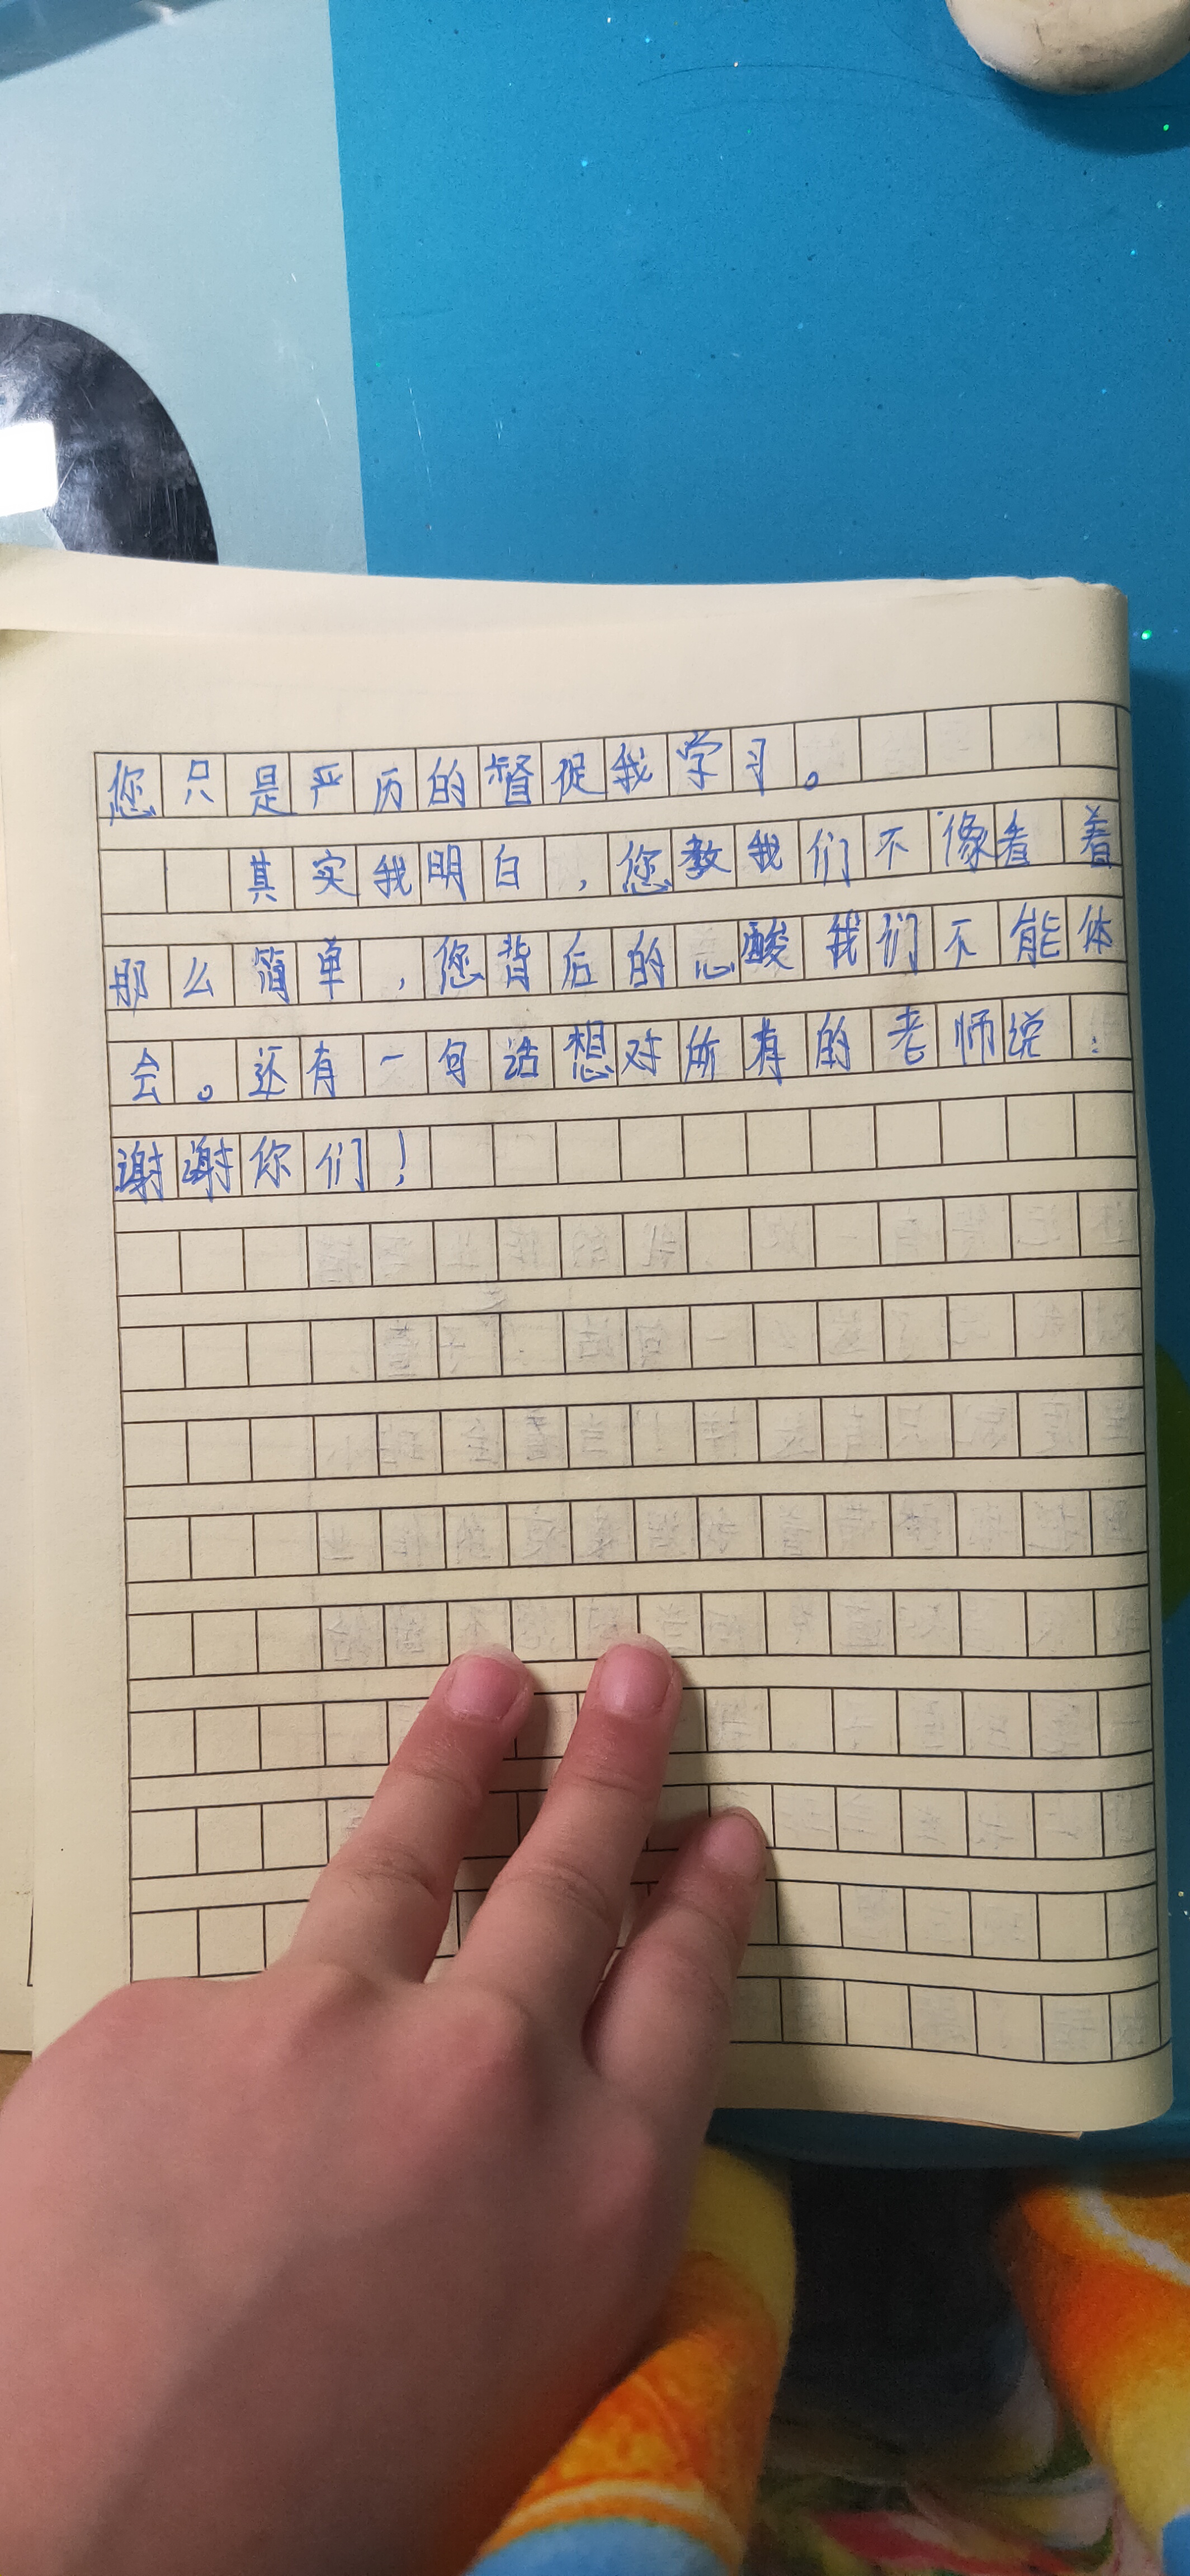 您只是严历的督促我学习。
其实我明白，您教我们不像看着
那么简单，您背后的心酸我们不能体
会。还有一句话想对所有的老师说：
谢谢你们！